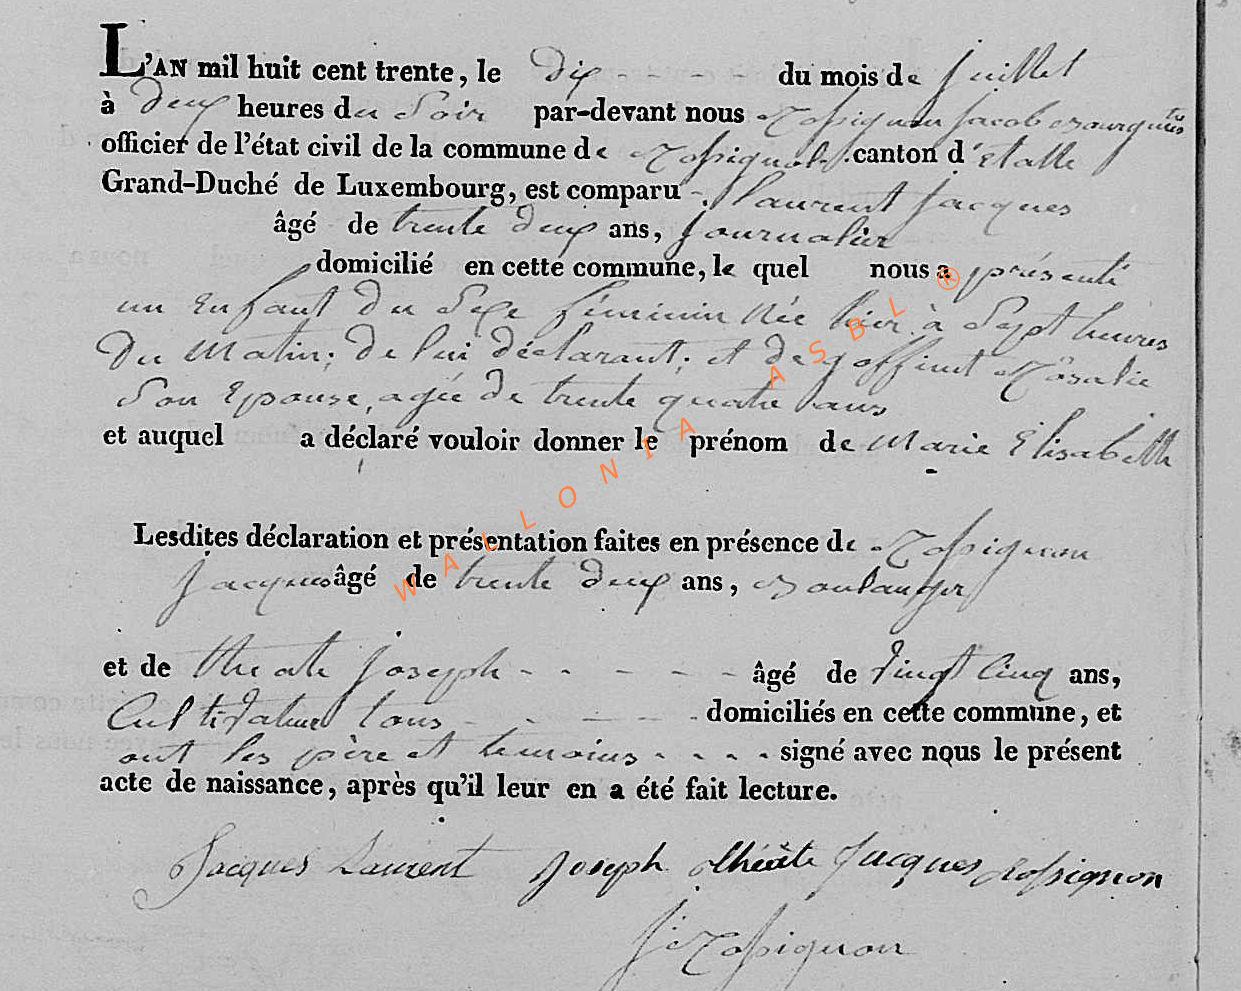 L'AN mil huit cent trente, le Dix - - - - du mois de Juillet
à Deux heures du Soir par-devant nous Rossignon Jacob Bourgue
officier de l'état civil de la commune de Rossignol canton d'Etalle
Grand-Duché de Luxembourg, est comparu Laurent Jacques
âgé de trente Deux ans, Journalier
domicilié en cette commune, le quel nous a présenté
un Enfant Du Sexe féminin Née hier à Sept heures
Du Matin; De lui déclarant; et de Goffinet Rosalie
Son Epouse, agée De trente quatre ans
et auquel a déclaré vouloir donner le prénom de Marie Elisabeth
Lesdites déclaration et présentation faites en présence de Rossignon
Jacques âgé de trente Deux ans, Boulanger
et de theate Joseph - - - - - âgé de Vingt Cinq ans,
Cultivateur tous - - - - - domiciliés en cette commune, et
ont les père et temoins - - - - signé avec nous le présent
acte de naissance, après qu'il leur en a été fait lecture.
Jacques Laurent Joseph théâte Jacques Rossignon
J Rossignon
WALLONIA ASBL ®